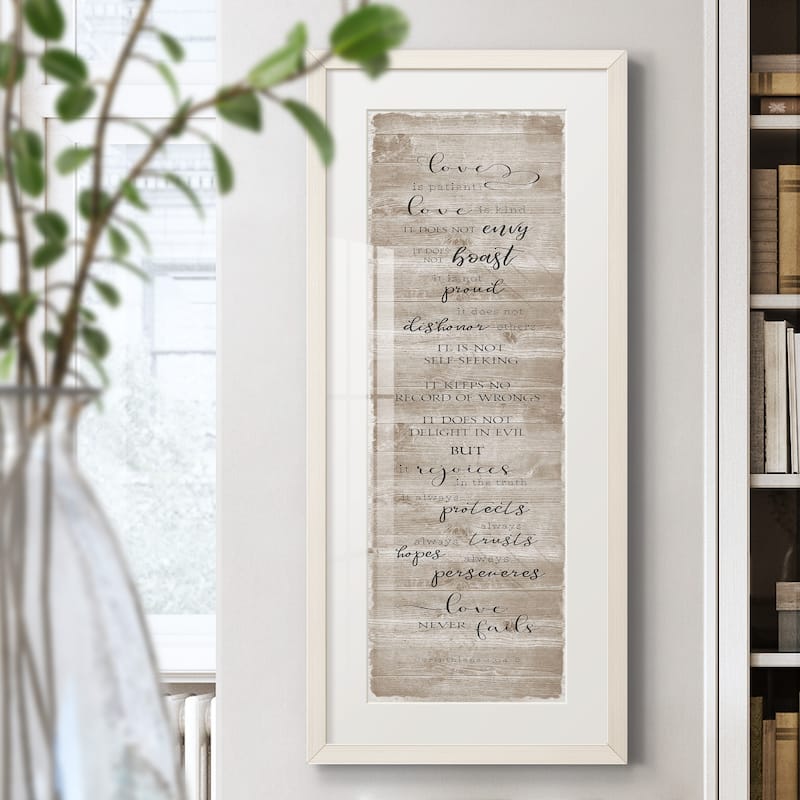 love
is patient
love is kind
IT DOES NOT envy
IT DOES
NOT boast
it is not
proud
it does not
dishonor others
IT IS NOT
SELF-SEEKING
IT KEEPS NO
RECORD OF WRONGS
IT DOES NOT
DELIGHT IN EVIL
BUT
it rejoices
in the truth
it always
protects
always
always trusts
hopes always
perseveres
love
NEVER fails